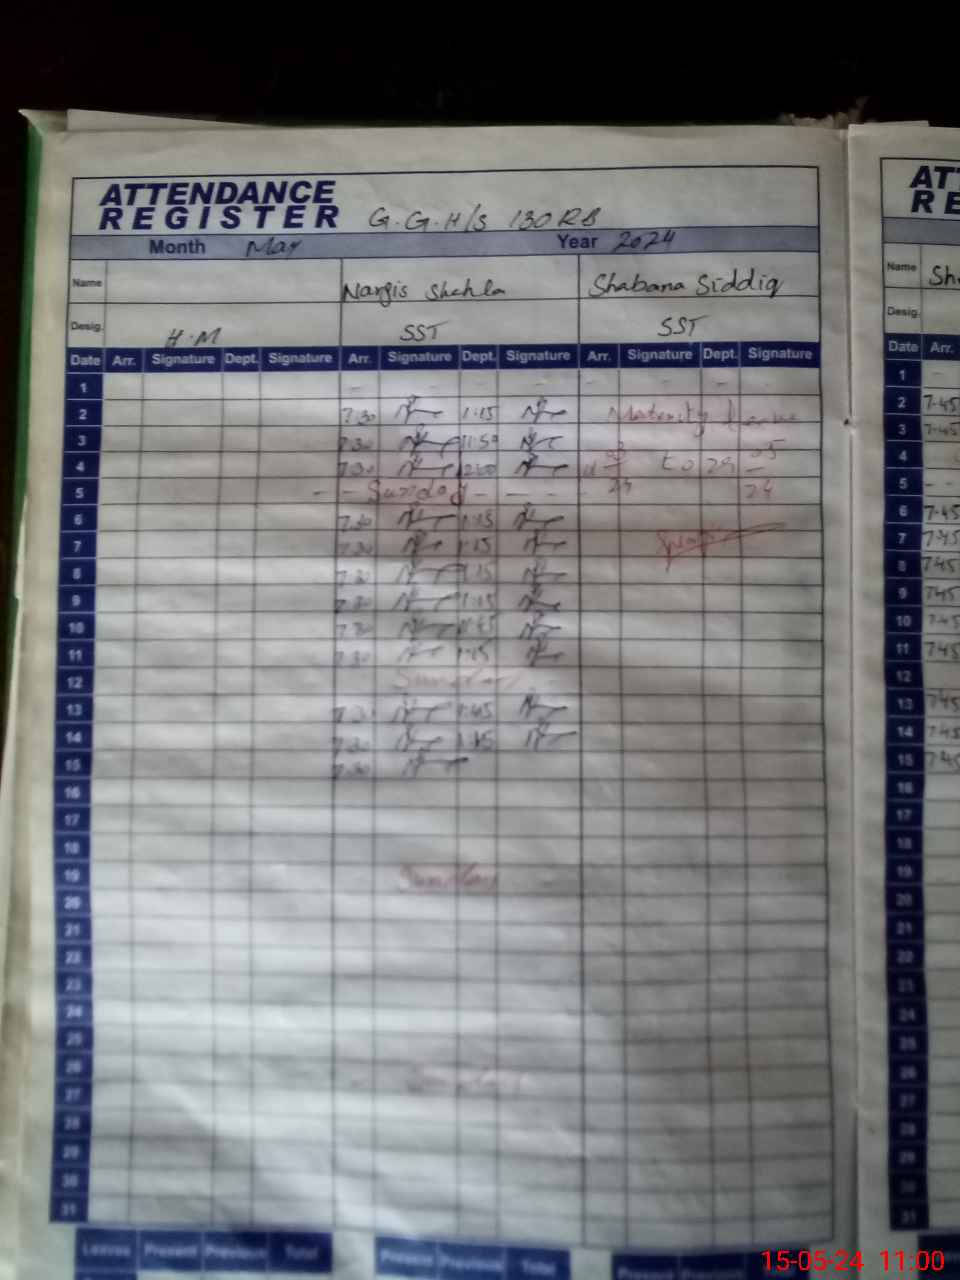 ATTENDANCE
REGISTER G.G.H/S 130 RB
Month May Year 2024
Name Nargis Shahla Shabana Siddiq
Desig. H.M SST SST
Date Arr. Signature Dept. Signature Arr. Signature Dept. Signature Arr. Signature Dept. Signature
1 - - - - - - - -
2 7:30 1:15 Maternity Leave
3 7:30 11:50
4 7:30 12:00 to
5 - - Sunday - - - - 24 24
6 7:30 1:15
7 7:30 1:15
8 7:30 1:15
9 7:30 1:15
10 7:30
11 7:30 1:15
12 Sunday
13 7:30 1:45
14 7:30 1:15
15 7:30
16
17
18
19 Sunday
20
21
22
23
24
25
26 Sunday
27
28
29
30
31
Leaves Present Previous Total Present Previous Total Present Previous
AT
RE
Name Sh
Desig.
Date Arr.
1 -
2 7:45
3 7:45
4
5 - -
6 7:45
7 7:45
8 7:45
9 7:45
10 7:45
11 7:45
12
13 7:45
14 7:45
15 7:45
16
17
18
19
20
21
22
23
24
25
26
27
28
29
30
31
15-05-24 11:00